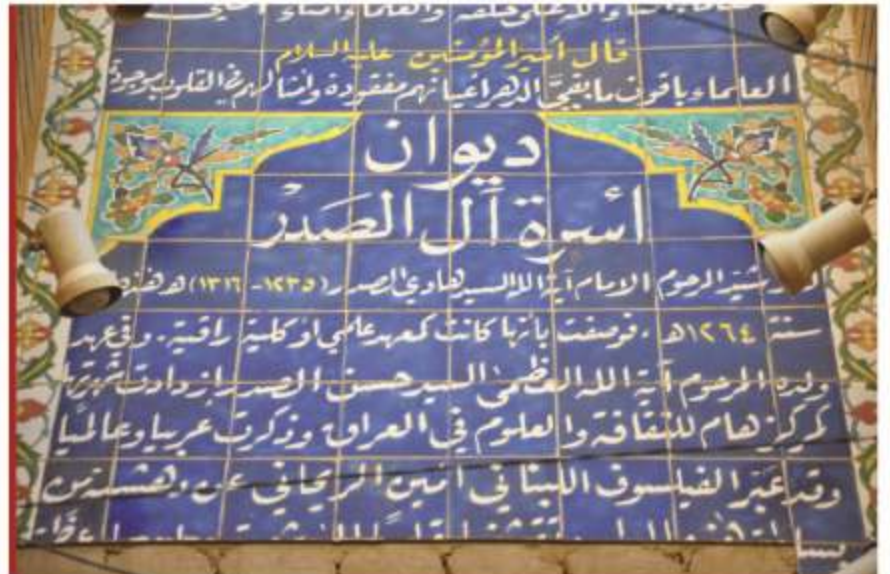 خلقه والعلماء وامناء
قال أمير المؤمنين عليه السلام
العلماء باقون ما بقي الدهر اعيانهم مفقودة وامثالهم في القلوب موجودة
ديوان
أسرة آل الصدر
المرحوم الامام آية الله السيد هادي الصدر (١٢٣٥-١٣١٦) هـ هذه
سنة ١٢٦٤هـ. فوصفت بأنها كانت كمعهد علمي او كلية راقية. وفي عهد
ولده المرحوم آية الله العظمى السيد حسن الصدر ازدادت شهرتها
كمركز هام للثقافة والعلوم في العراق وذكرت عربيا وعالميا
وقد عبّر الفيلسوف اللبناني امين الريحاني عن دهشته من